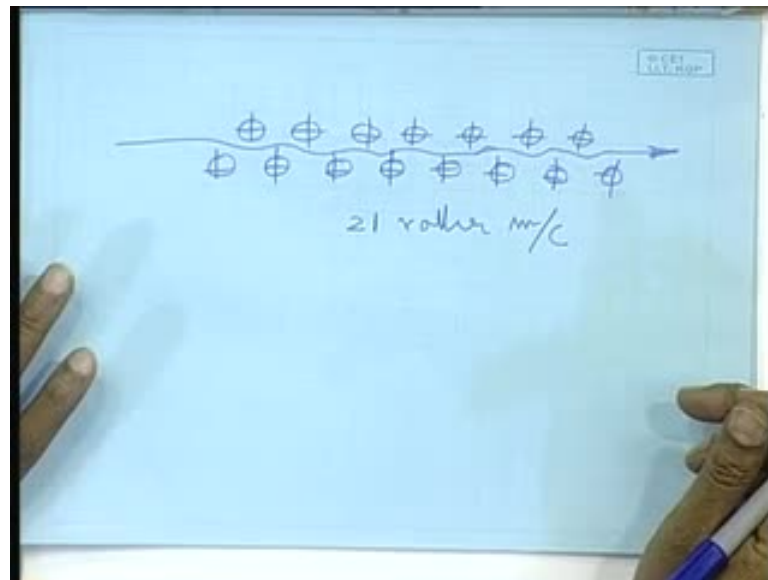 © CET
I.I.T. KGP
21 roller m/c